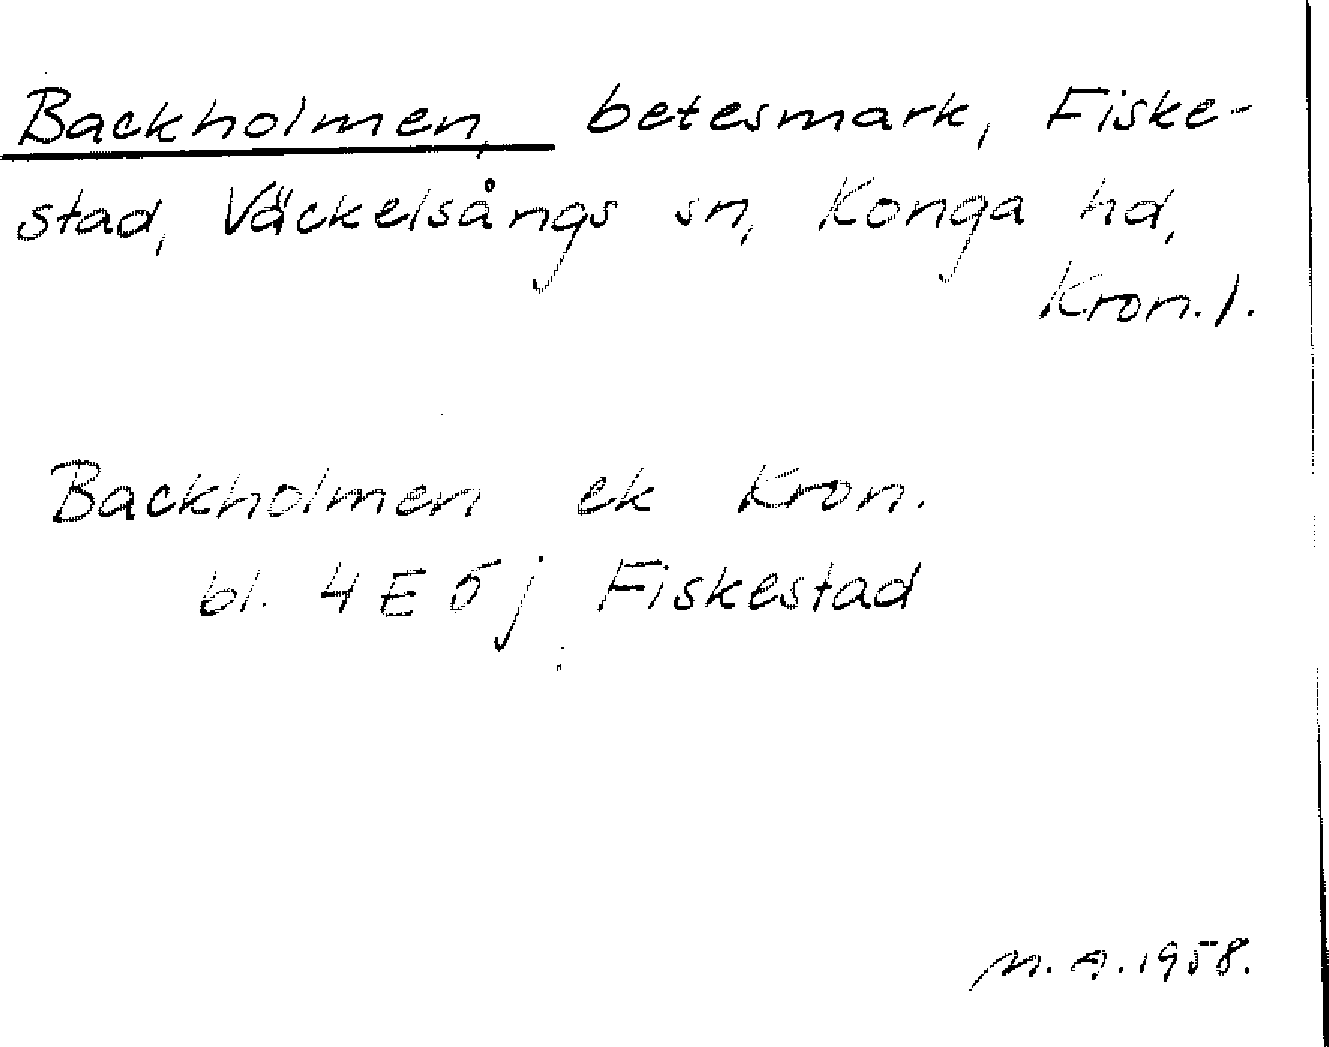 Backholmen, betesmark, Fiske-
stad, Väckelsångs sn, Konga hd,
Kron. l.
Backholmen ek Kron.
bl. 4 E 5 j Fiskestad
M. A. 1958.